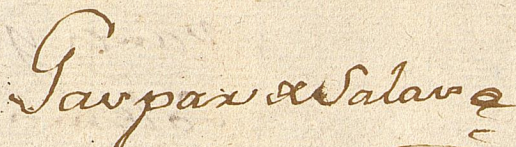 Gaspar de Salava